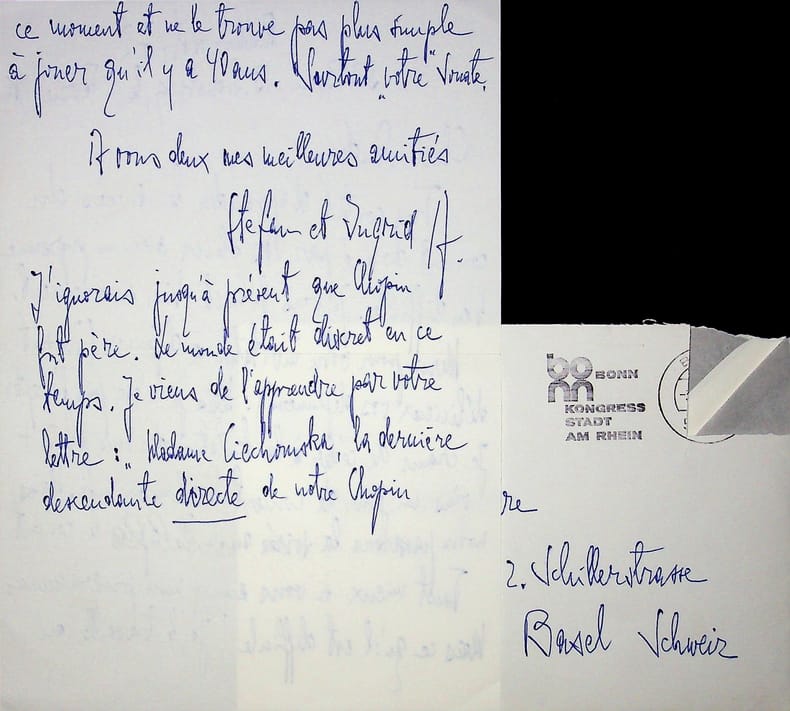 ce moment et ne le trouve pas plus simple
à jouer qu'il y a 40 ans. Surtout „votre" Sonate.
A vous deux mes meilleures amitiés
Stefan et Ingrid A.
J'ignorais jusqu'à présent que Chopin
fut père. Le monde était discret en ce
temps. Je viens de l'apprendre par votre
lettre : „Madame Ciechomska, la dernière
descendante directe de notre Chopin
BONN
BONN
KONGRESS
STADT
AM RHEIN
re
2. Schillerstrasse
Basel Schweiz